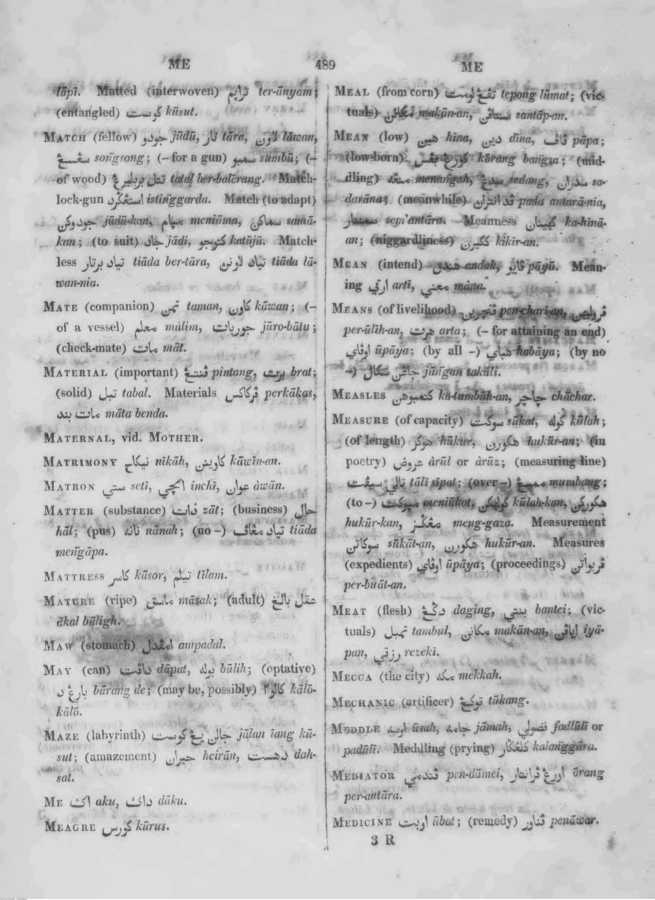 ME 489 ME
tāpī. Matted (interwoven) ter-ānyam;
(entangled) كوست kūsut.
MATCH (fellow) جودو jūdū, تار tāra, لاون lāwan,
songsong; (– for a gun) سمبو sumbū; (–
of wood) tatal ber-balērang. Match-
lock-gun istinggarda. Match (to adapt)
جودوكن jūdū-kan, meniāma, سماكن samā-
kan; (to suit) جاد jādi, katūjū. Match-
less تياد برتار tiāda ber-tāra, تياد لاونن tiāda lā-
wan-nia.
MATE (companion) تمن taman, كاون kāwan; (–
of a vessel) معلم mālim, جوروبات jūro-bātu;
(check-mate) مات māt.
MATERIAL (important) pintang, برت brat;
(solid) تبل tabal. Materials ڤركاكس perkākas,
مات بند māta benda.
MATERNAL, vid. MOTHER.
MATRIMONY نيكاح nikāh, كاوينن kāwīn-an.
MATRON ستي seti, انچي inchī, عوان āwān.
MATTER (substance) ذات zāt; (business) حال
hāl; (pus) نانه nānah; (no –) تياد مڠاڤ tiāda
mengāpa.
MATTRESS كاسر kāsor, تيلم tīlam.
MATURE (ripe) ماسق māsak; (adult) عقل بالغ
ākal bāligh.
MAW (stomach) امڤدل ampadal.
MAY (can) داڤت dāpat, بوله būlih; (optative)
بارڠ د bārang de; (may be, possibly) كالو٢ kālō-
kālō.
MAZE (labyrinth) جالن يڠ كوست jālan īang kū-
sut; (amazement) حيران heirān, دهست dah-
sat.
ME اك aku, داك dāku.
MEAGRE كورس kūrus.
MEAL (from corn) تڤڠ لومت tepong lūmat; (vic-
tuals) مكانن makān-an, سنتاڤن santāp-an.
MEAN (low) هين hīna, دين dīna, ڤاڤ pāpa;
(low-born) كورڠ بڠس kōrang bangsa; (mid-
dling) menangah, سدڠ sedang, سدران sa-
darāna; (meanwhile) ڤد انتراڽ pada antarā-nia,
seprantāra. Meanness كهينان ka-hinā-
an; (niggardliness) ككيرن kikir-an.
MEAN (intend) هندق andak, ڤايو pāyū. Mean-
ing ارتي arti, معني māna.
MEANS (of livelihood) pen-chari-an,
per-ūlih-an, هرت arta; (– for attaining an end)
اوڤاي ūpāya; (by all –) هباي habāya; (by no
–) جاڠن سكال jāngan sakāli.
MEASLES كتمبوهن ka-tumbūh-an, چاچر chāchar.
MEASURE (of capacity) سوكت sūkat, كوله kūlah;
(of length) هوكر hūkur, هكورن hukūr-an; (in
poetry) عروض ārūl or ārūz; (measuring line)
تالي سيڤت tāli sīpat; (over –) mumbang;
(to –) meniūkat, kūlah-kan, هكوركن
hukūr-kan, مڠڬز meng-gaza. Measurement
سوكاتن sūkāt-an, هكورن hukūr-an. Measures
(expedients) اوڤاي ūpāya; (proceedings) ڤربواتن
per-būāt-an.
MEAT (flesh) داڬڠ daging, بنتي bantei; (vic-
tuals) تمبل tambul, مكانن makān-an, اياڤن iyā-
pan, رزقي rezekī.
MECCA (the city) مكه mekkah.
MECHANIC (artificer) توكڠ tūkang.
MEDDLE ūsah, جامه jāmah, فضولي fadlūlī or
padūlī. Meddling (prying) kalanggāra.
MEDIATOR ڤندمي pen-dāmei, اورڠ ڤرانتار ōrang
per-antāra.
MEDICINE اوبت ūbat; (remedy) ڤناور penāwar.
3 R